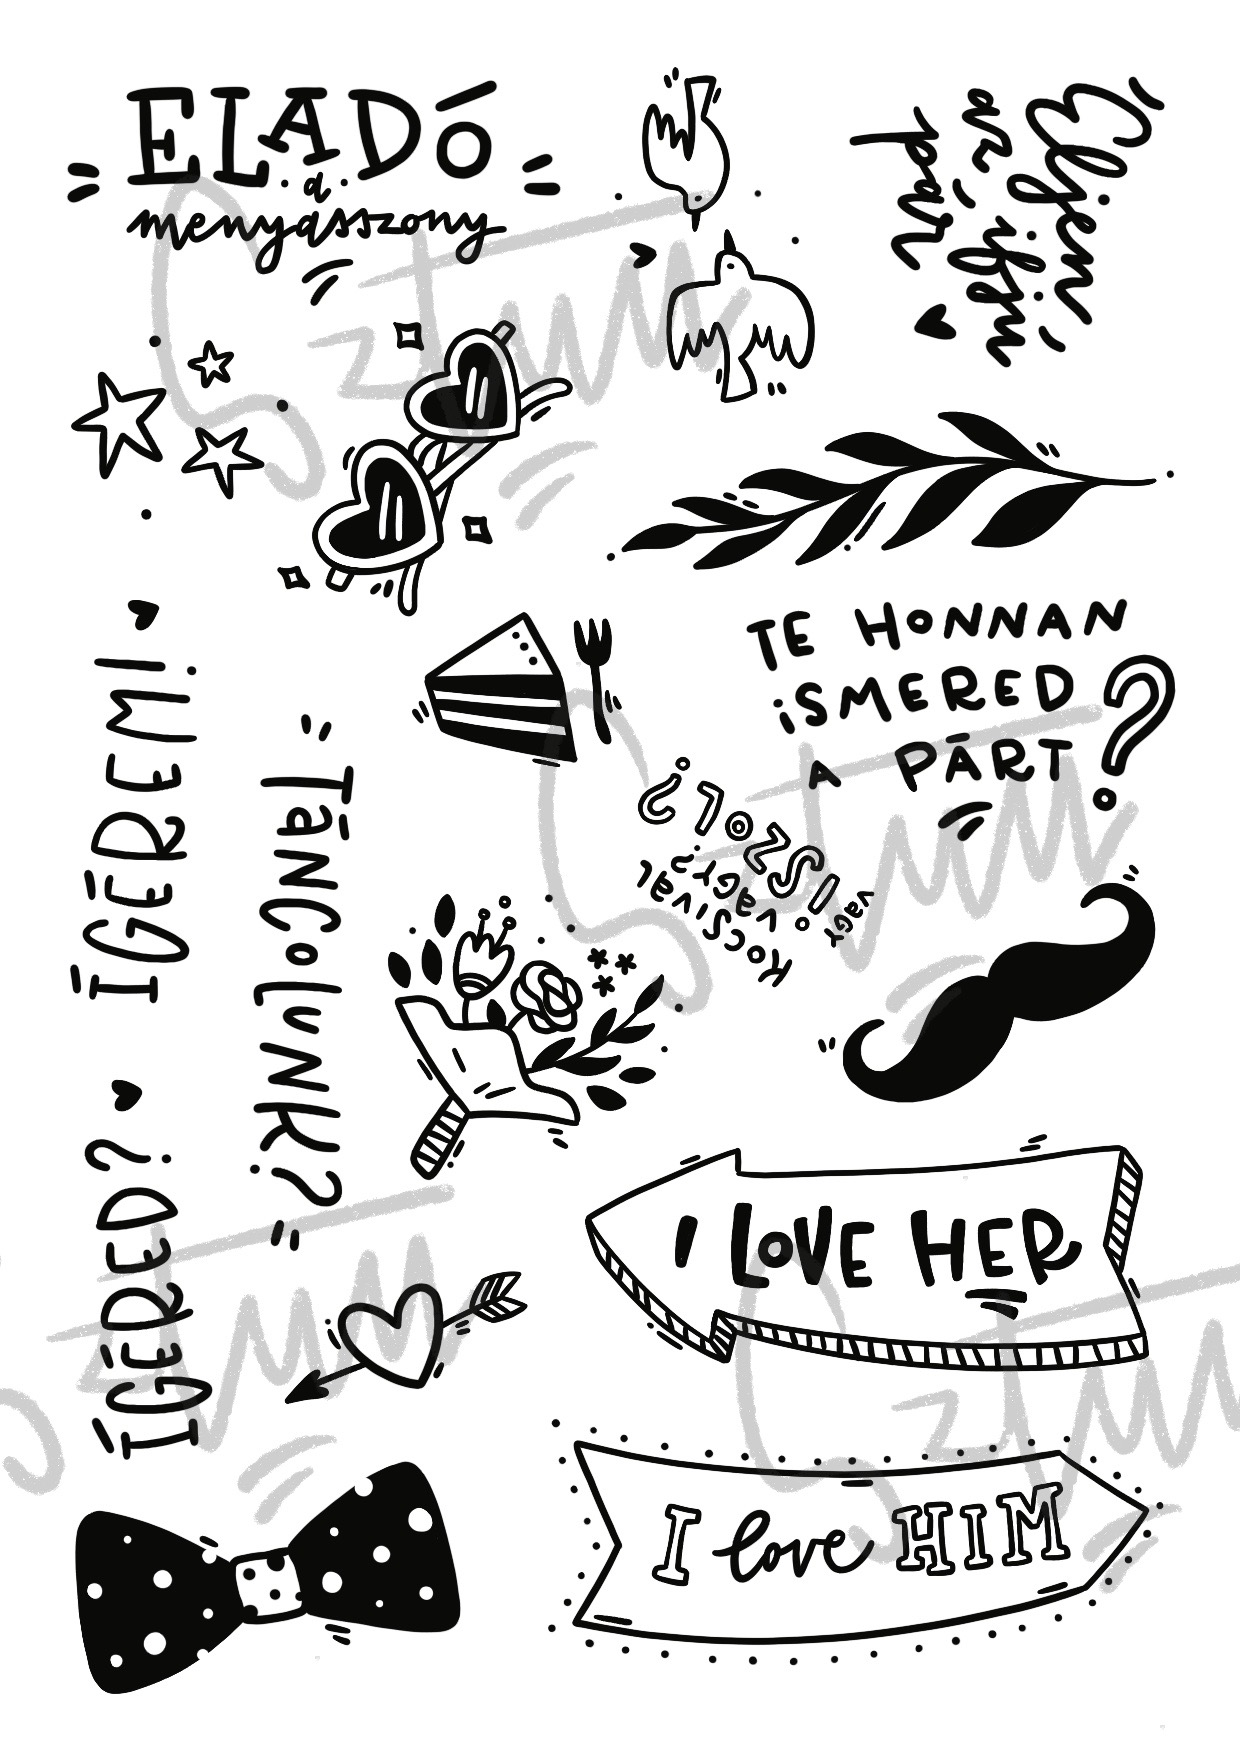 ELADÓ
a
menyasszony
Éljen
az ifjú
pár
TE HONNAN
ISMERED
A PÁRT?
ÍGÉREM!
TÁNCOLUNK?
KOCSIVAL
VAGY,
VAGY ISZOL?
ÍGÉRED?
I LOVE HER
I love HIM